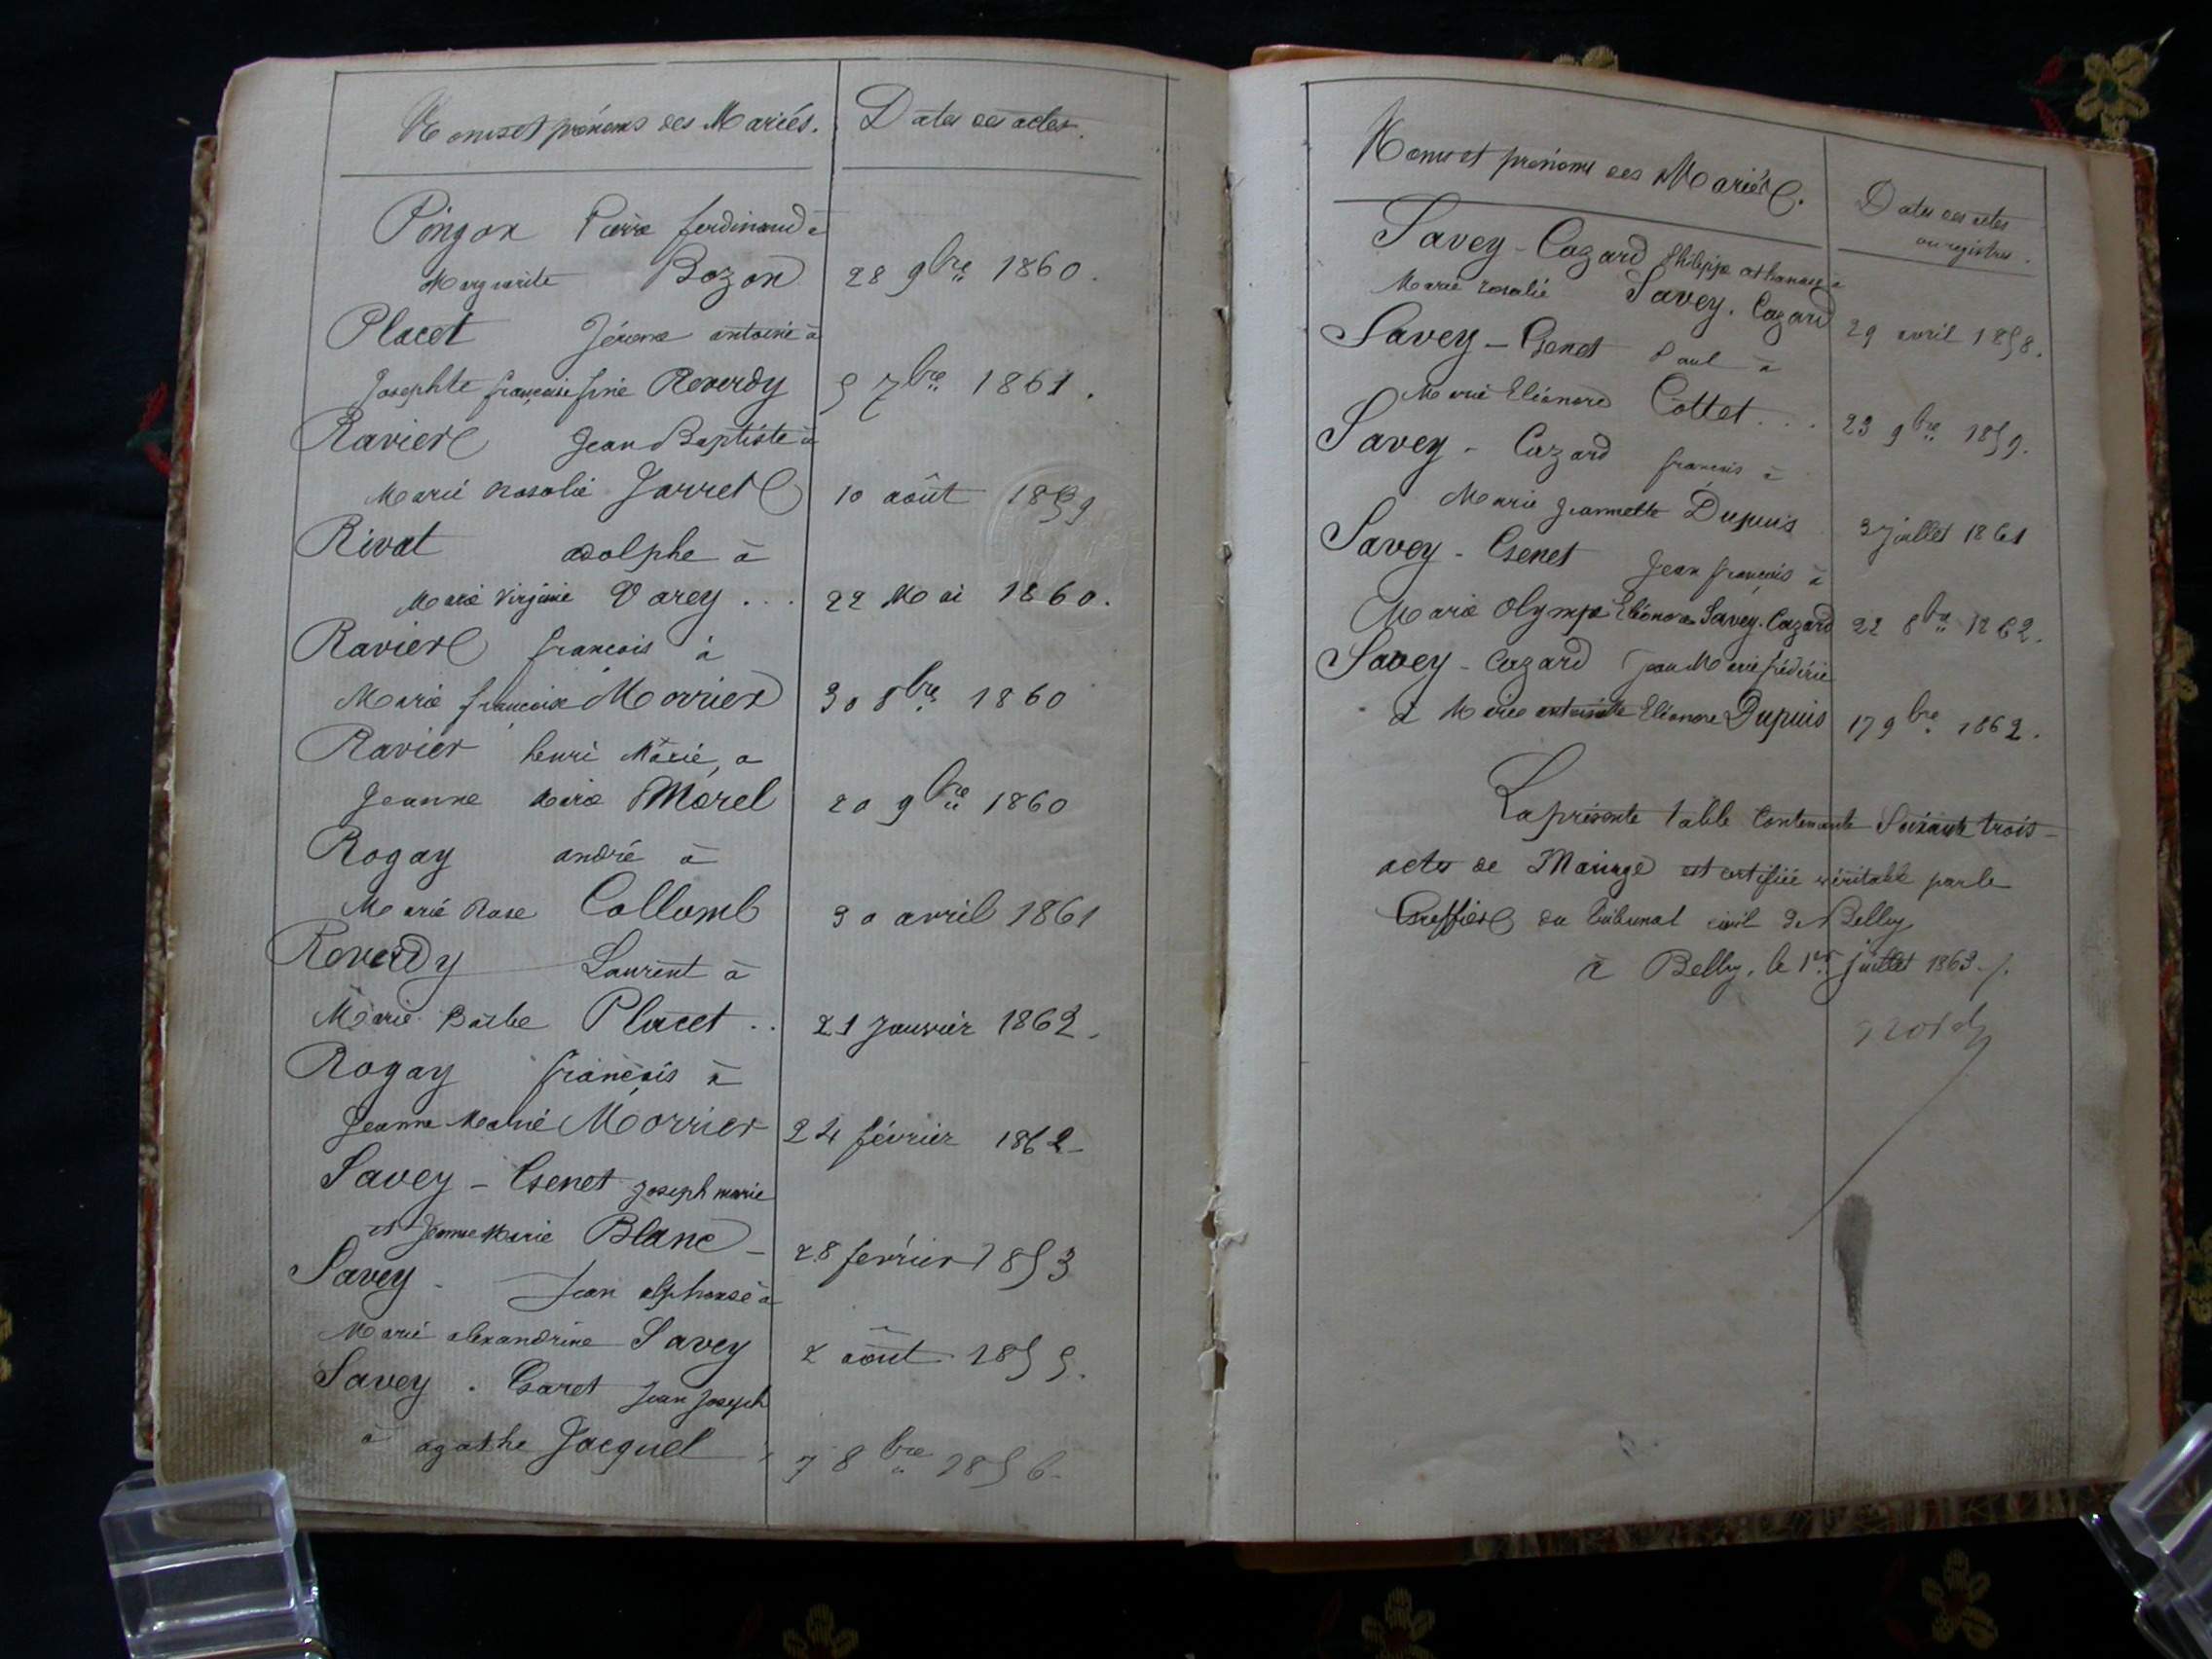 Noms et prénoms des Mariés. Dates des actes.
Pingon Pierre ferdinand à
Marguerite Bozon 28 9bre 1860.
Placet Jérome antoine à
Josephte françoise fine Reverdy 5 7bre 1861.
Ravier Jean Baptiste à
Marie Rosalie Jarret 10 août 1859
Rivat adolphe à
Marie Virginie Varey ... 22 Mai 1860.
Ravier françois à
Marie françoise Morrier 30 8bre 1860
Ravier henri Marie, a
Jeanne Marie Morel 20 9bre 1860
Rogay andré à
Marie Rose Collomb 30 avril 1861
Reverdy Laurent à
Marie Barbe Placet .. 21 Janvier 1862.
Rogay françois à
Jeanne Marie Morrier 24 février 1862
Savey - Genet Joseph marie
et Jeanne Marie Blanc - 28 fevrier 1853
Savey - Jean alphonse à
Marie alexandrine Savey 2 août 1855.
Savey - Garet Jean Joseph
à agathe Jacquet 7 8bre 1856.
Noms et prénoms des Mariés. Dates des actes
au registre.
Savey - Cazard Philippe athanase à
Marie rosalie Savey. Cazard 29 avril 1858.
Savey - Genet Paul à
Marie Eléonore Cottet ... 23 9bre 1859.
Savey - Cazard françois à
Marie Jeannette Dupuis 3 Juillet 1861
Savey - Genet Jean françois à
Marie Olympe Eléonore Savey. Cazard 22 8bre 1862.
Savey - Cazard Jean Marie frédéric
à Marie antoinette Eléonore Dupuis 17 9bre 1862.
La présente table Contenante Soixante trois
actes de Mariage est certifiée véritable par le
Greffier du Tribunal civil de Belley
à Belley, le 1er Juillet 1863./.